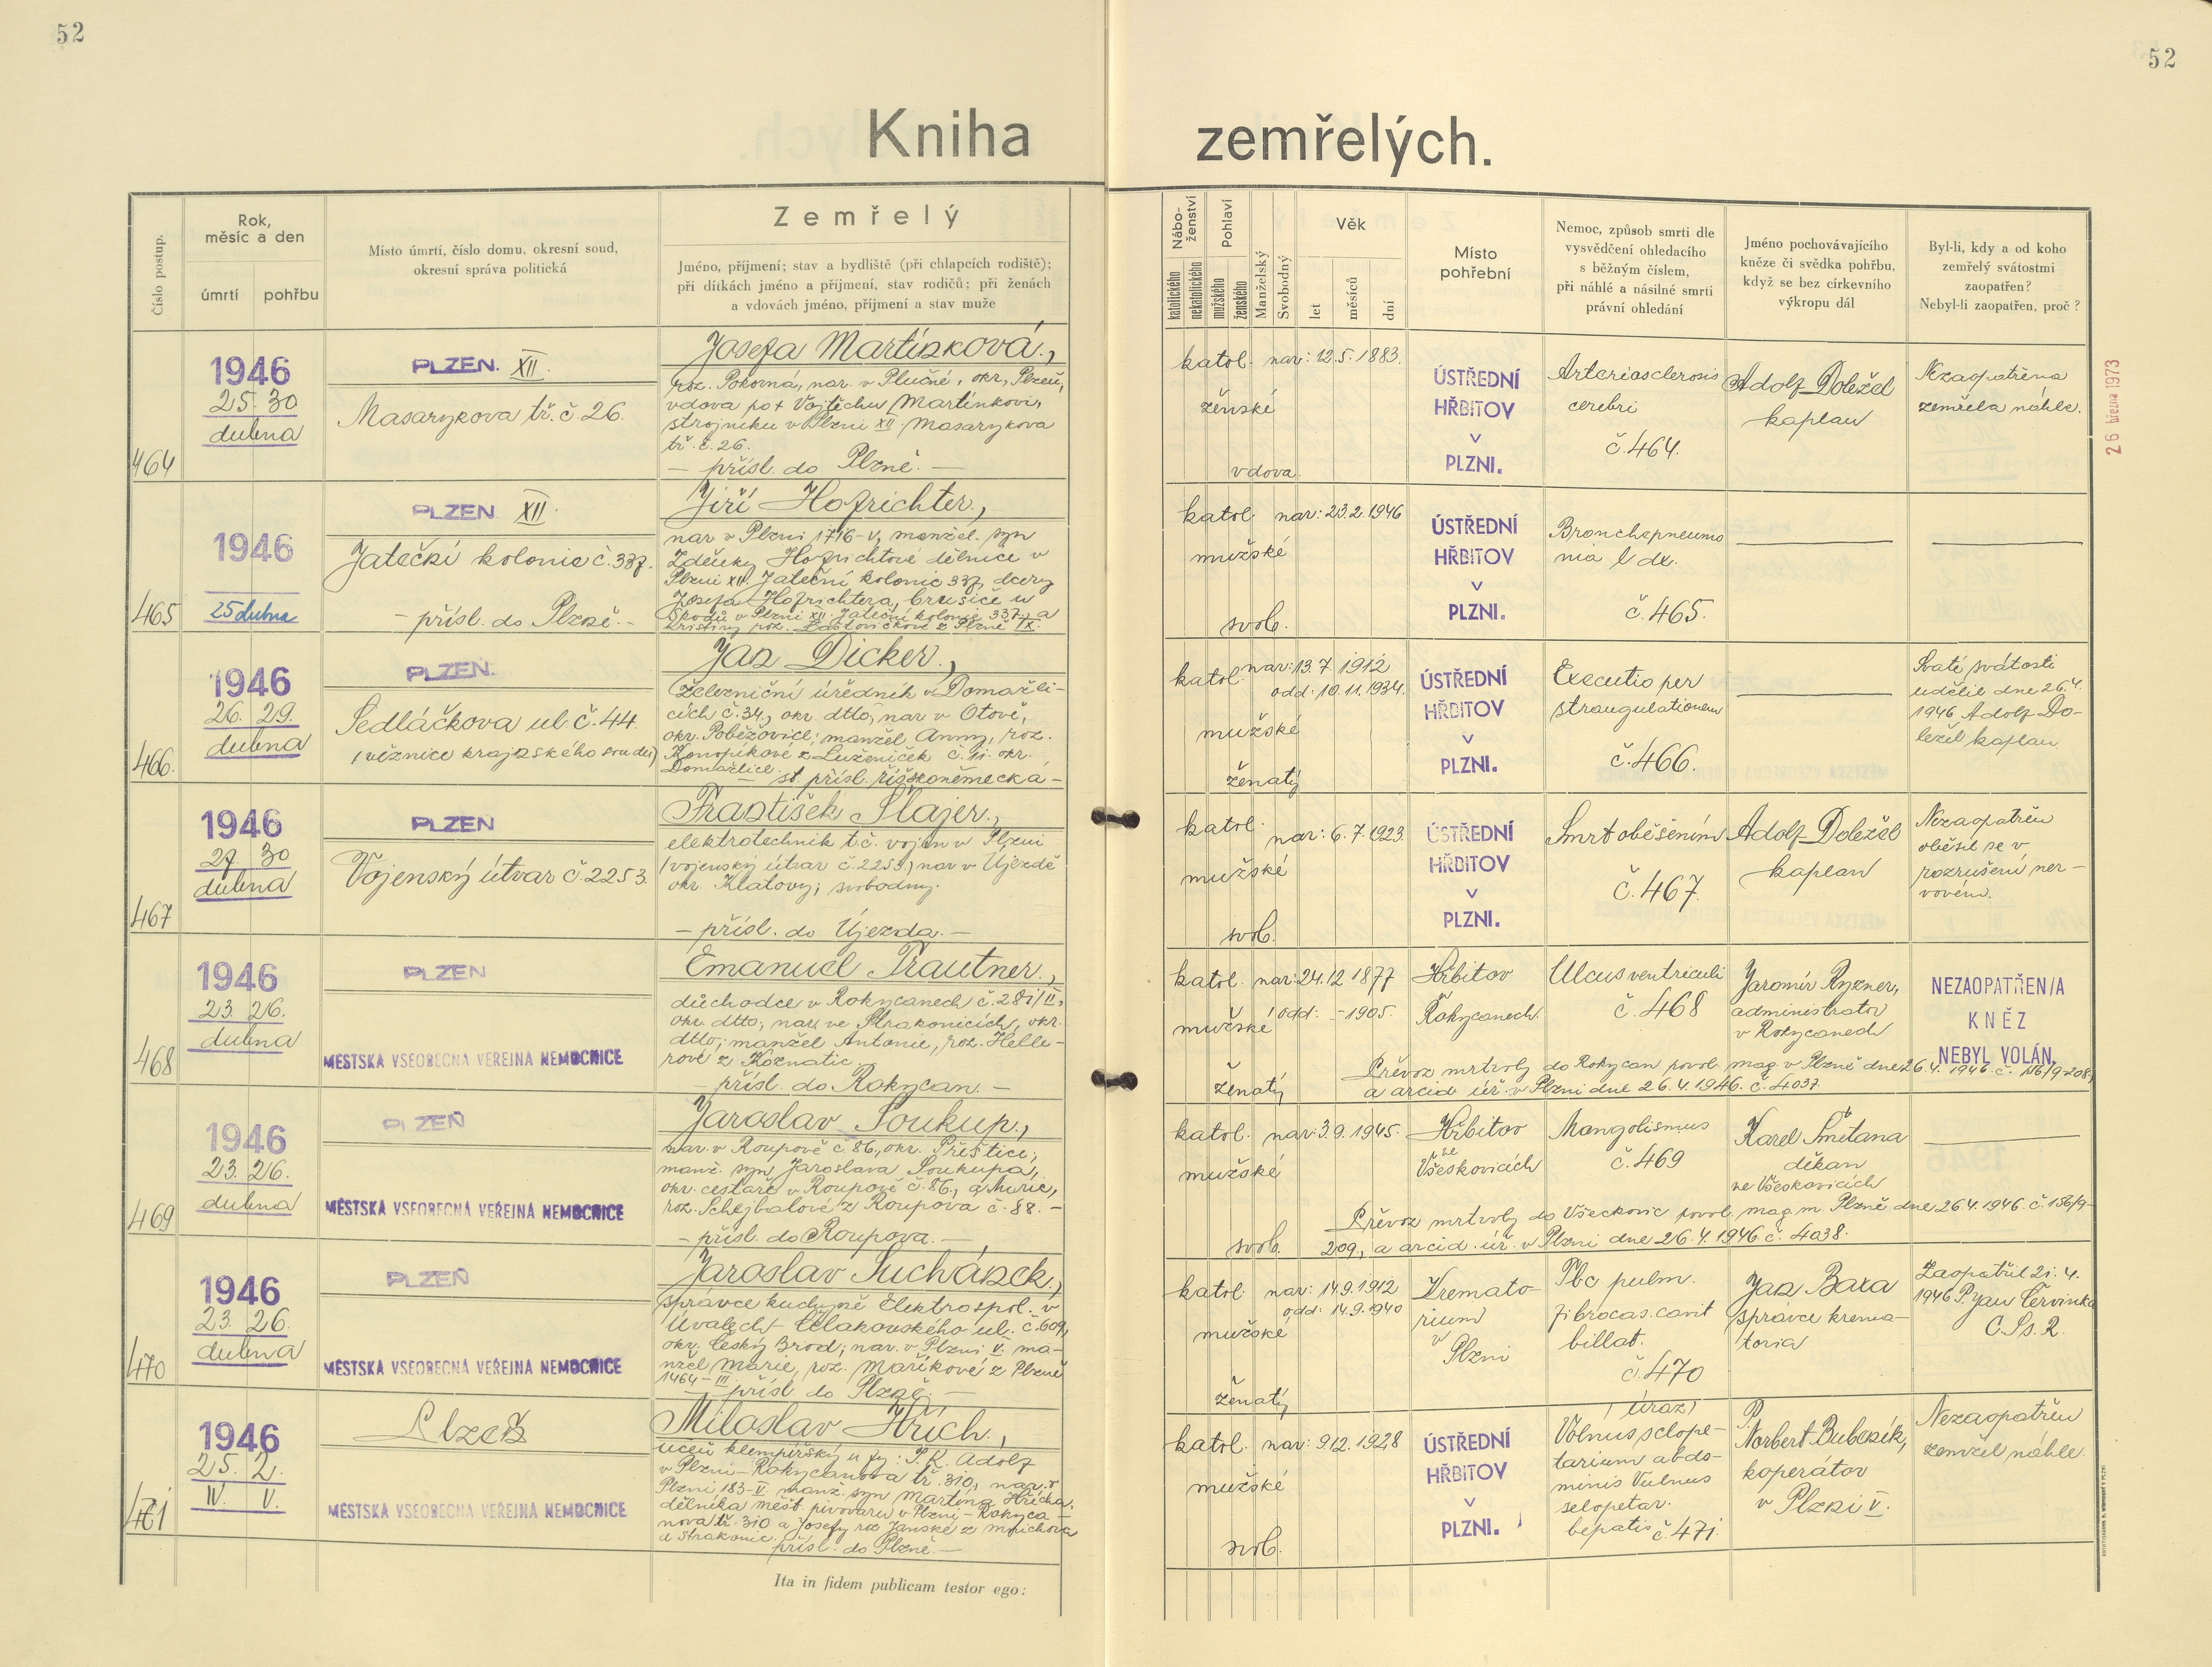 52
52
Kniha zemřelých.
Číslo postup.
Rok,
měsíc a den
úmrtí
pohřbu
Místo úmrtí, číslo domu, okresní soud,
okresní správa politická
Zemřelý
Jméno, příjmení; stav a bydliště (při chlapcích rodiště);
při dítkách jméno a příjmení, stav rodičů; při ženách
a vdovách jméno, příjmení a stav muže
Nábo-
ženství
katolického
nekatolického
Pohlaví
mužského
ženského
Manželský
Svobodný
Věk
let
měsíců
dní
Místo
pohřební
Nemoc, způsob smrti dle
vysvědčení ohledacího
s běžným číslem,
při náhlé a násilné smrti
právní ohledání
Jméno pochovávajícího
kněze či svědka pohřbu,
když se bez církevního
výkropu dál
Byl-li, kdy a od koho
zemřelý svátostmi
zaopatřen?
Nebyl-li zaopatřen, proč?
464
1946
25. 30
dubna
PLZEN. XII.
Masarykova tř. č. 26.
Josefa Martínková,
roz. Pokorná, nar. v Plučné, okr. Plzeň,
vdova po † Vojtěchu Martínkovi,
strojníku v Plzni XII. Masarykova
tř. č. 26.
— přísl. do Plzně. —
katol.
ženské
vdova
nar: 12. 5. 1883.
ÚSTŘEDNÍ
HŘBITOV
V
PLZNI.
Arteriosclerosis
cerebri
č. 464.
Adolf Doležel
kaplan
Nezaopatřena
zemřela náhle.
26 března 1973
465
1946
25 dubna
PLZEN XII.
Jateční kolonie č. 337.
— přísl. do Plzně. —
Jiří Hofrichter,
nar. v Plzni 1716-V, manžel. syn
Zdeňky Hofrichtové dělnice v
Plzni XII. Jateční kolonie 337, dcery
Josefa Hofrichtera, brusiče u
Škodů v Plzni XII. Jateční kolonie 337, a
Kristiny roz. Lastovičkové z Plzně IX.
katol.
mužské
svob.
nar: 23. 2. 1946
ÚSTŘEDNÍ
HŘBITOV
V
PLZNI.
Bronchopneumo
nia l dx.
č. 465.
466.
1946
26. 29.
dubna
PLZEN.
Sedláčkova ul. č. 44.
(věznice krajského soudu)
Jan Dicker,
železniční úředník v Domažli-
cích č. 34, okr. dtto, nar. v Otově,
okr. Poběžovice; manžel Anny, roz.
Konopíkové z Luženiček č. 11. okr.
Domažlice.
— st. přísl. říškoněmecká —
katol.
mužské
ženatý
nar: 13. 7. 1912
odd: 10. 11. 1934.
ÚSTŘEDNÍ
HŘBITOV
V
PLZNI.
Executio per
strangulationem
č. 466.
Svaté svátosti
udělil dne 26. 4.
1946 Adolf Do-
ležel kaplan
467
1946
27 30
dubna
PLZEN
Vojenský útvar č. 2253.
František Šlajer,
elektrotechnik t.č. vojín v Plzni
(vojenský útvar č. 2253) nar. v Újezdě
okr. Klatovy; svobodný.
— přísl. do Újezda. —
katol.
mužské
svob.
nar: 6. 7. 1923.
ÚSTŘEDNÍ
HŘBITOV
V
PLZNI.
Smrt oběšením
č. 467.
Adolf Doležel
kaplan
Nezaopatřen
oběsil se v
rozrušení ner-
vovém.
468
1946
23. 26.
dubna
PLZEN
MĚSTSKÁ VŠEOBECNÁ VEŘEJNÁ NEMOCNICE
Emanuel Trautner,
důchodce v Rokycanech č. 281/II,
okr. dtto, nar. ve Strakonicích, okr.
dtto; manžel Antonie, roz. Helle-
rové z Koznatic.
— přísl. do Rokycan. —
katol.
mužské
ženatý
nar: 24. 12. 1877
odd: - 1905.
Hřbitov
Rokycanech.
Ulcus ventriculi
č. 468
Jaromír Ryzner,
administrator
v Rokycanech
NEZAOPATŘEN/A
KNĚZ
NEBYL VOLÁN.
Převoz mrtvoly do Rokycan povol. mag. v Plzně dne 26. 4. 1946. č. 156/9-208,
a arcid. úř. v Plzni dne 26. 4. 1946. č. 4037
469
1946
23. 26.
dubna
PLZEŇ
MĚSTSKÁ VŠEOBECNÁ VEŘEJNÁ NEMOCNICE
Jaroslav Soukup,
nar. v Roupově č. 86, okr. Přeštice,
manž. syn Jaroslava Soukupa,
okr. cestaře v Roupově č. 86, a Marie,
roz. Schejbalové z Roupova č. 88. —
— přísl. do Roupova. —
katol.
mužské
svob.
nar: 3. 9. 1945.
Hřbitov
ve
Všeskovicích
Mongolismus
č. 469
Karel Smetana
děkan
ve Všeskovicích
Převoz mrtvoly do Všeckovic povol. mag. m. Plzně dne 26. 4. 1946. č. 156/9-
209, a arcid. úř. v Plzni dne 26. 4. 1946 č. 4038.
470
1946
23. 26.
dubna
PLZEŇ
MĚSTSKÁ VŠEOBECNÁ VEŘEJNÁ NEMOCNICE
Jaroslav Suchánek,
správce kuchyně Elektrospol. v
Úvalech Čelakovského ul. č. 609,
okr. Český Brod; nar. v Plzni V. ma-
nžel Marie, roz. Maříkové z Plzně
1464-III
— přísl. do Plzně. —
katol.
mužské
ženatý
nar: 14. 9. 1912
odd: 14. 9. 1940
Kremato-
rium
v
Plzni
Tbc pulm.
fibrocas. cavit
billat.
č. 470
Jan Baxa
správce krema-
toria
Zaopatřil 21. 4.
1946 P. Jan Červinka
C. Ss. R.
471
1946
25. 2.
IV. V.
Plzeň
MĚSTSKÁ VŠEOBECNÁ VEŘEJNÁ NEMOCNICE
Miloslav Hřích,
učeň klempířský u fy: P. K. Adolf
v Plzni-Rokycanova tř. 310, nar. v
Plzni 183-V. manž. syn Martina Hřícha,
dělníka měšť. pivovaru v Plzni-Rokyca-
nova tř. 310 a Josefy roz. Janské z Mnichova
u Strakonic.
přísl. do Plzně. —
katol.
mužské
svob.
nar: 9. 12. 1928
ÚSTŘEDNÍ
HŘBITOV
V
PLZNI.
(úraz)
Volnus sclope-
tarium abdo-
minis Vulnus
selopetar.
hepatis č. 471.
P.
Norbert Bubeník,
koperátor
v Plzni V.
Nezaopatřen
zemřel náhle.
Ita in fidem publicam testor ego: